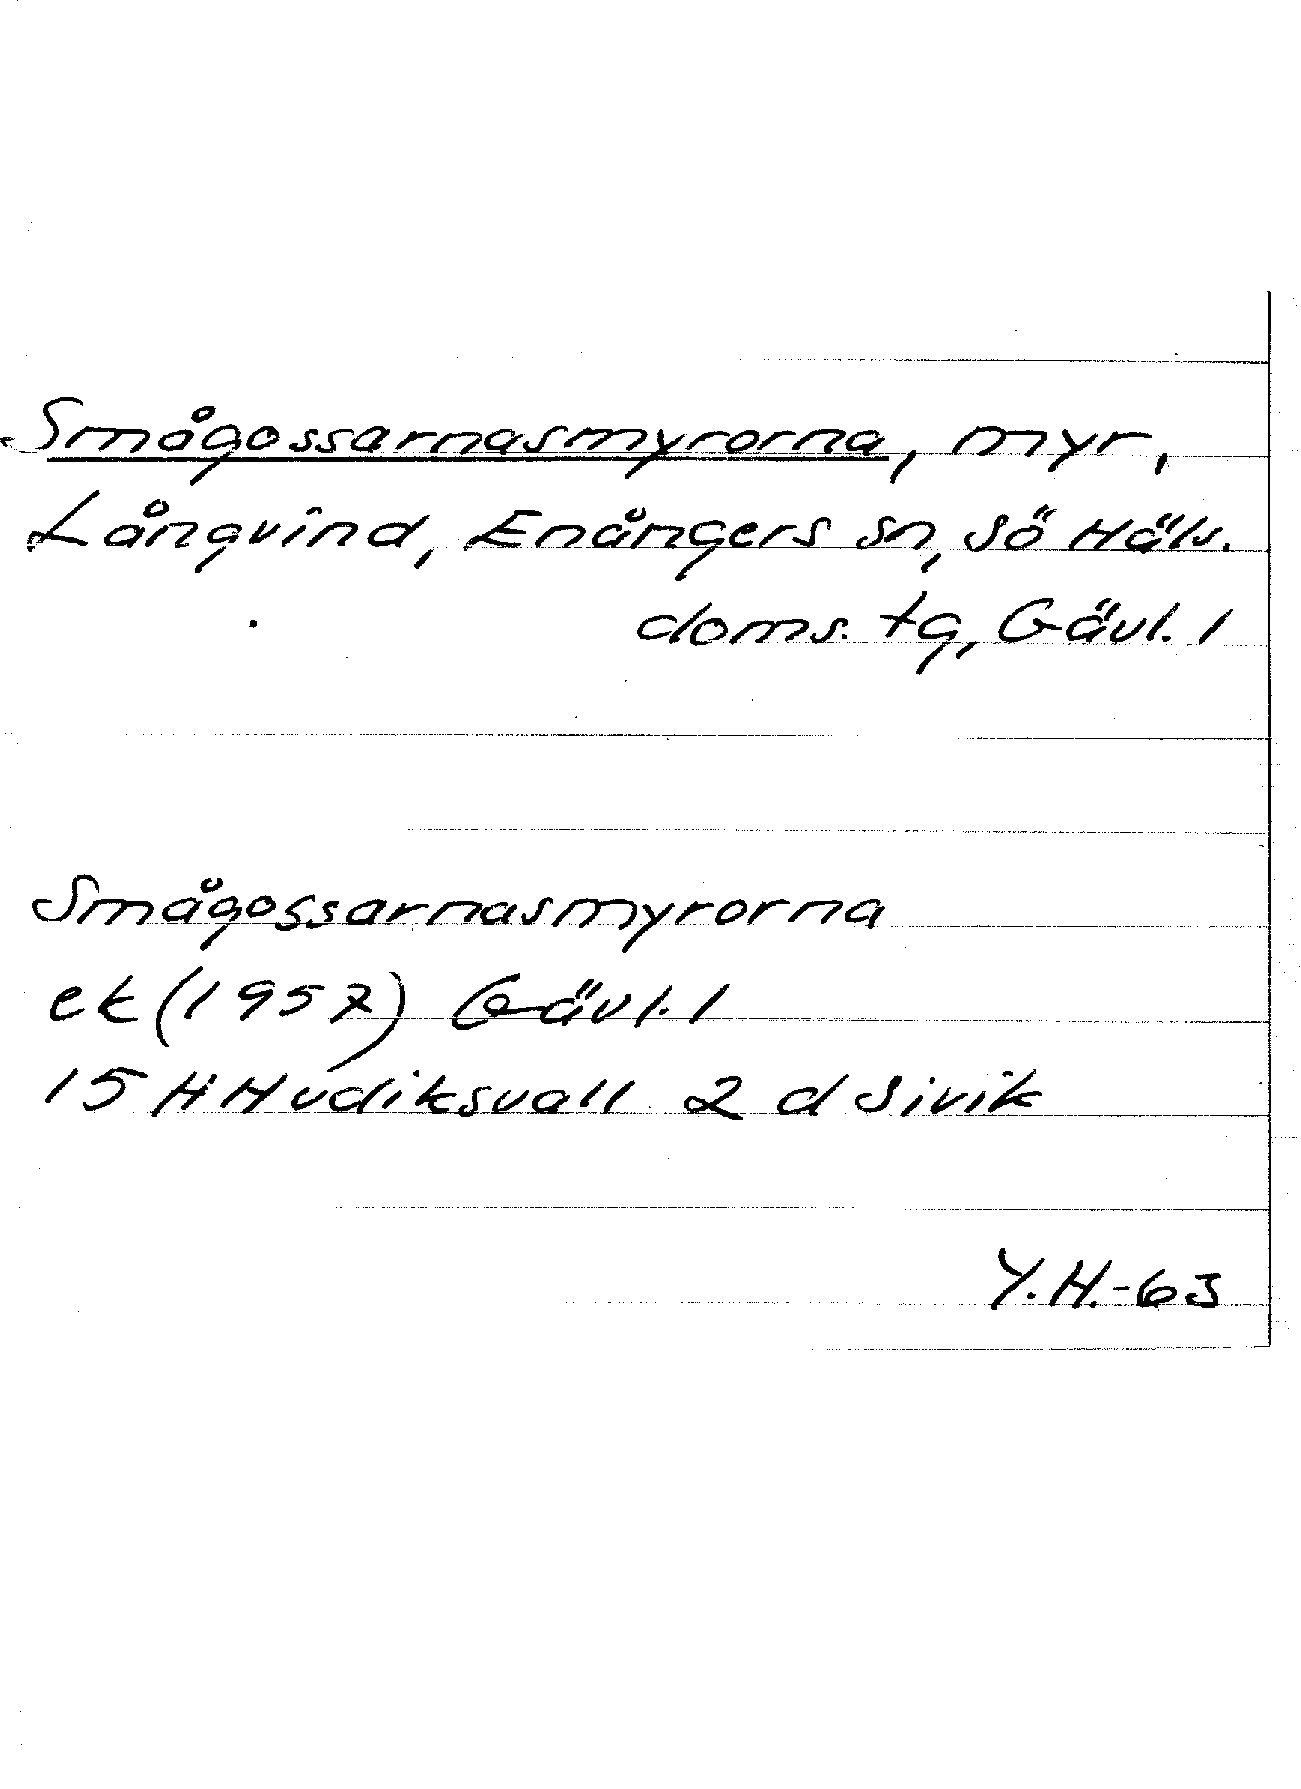 Smågossarnasmyrorna, myr,
Långvind, Enångers sn, Sö Häls.
doms. tg, Gävl. l
Smågossarnasmyrorna
ek (1957) Gävl. l
15 H Hudiksvall 2 d Sivik
Y.H.-63